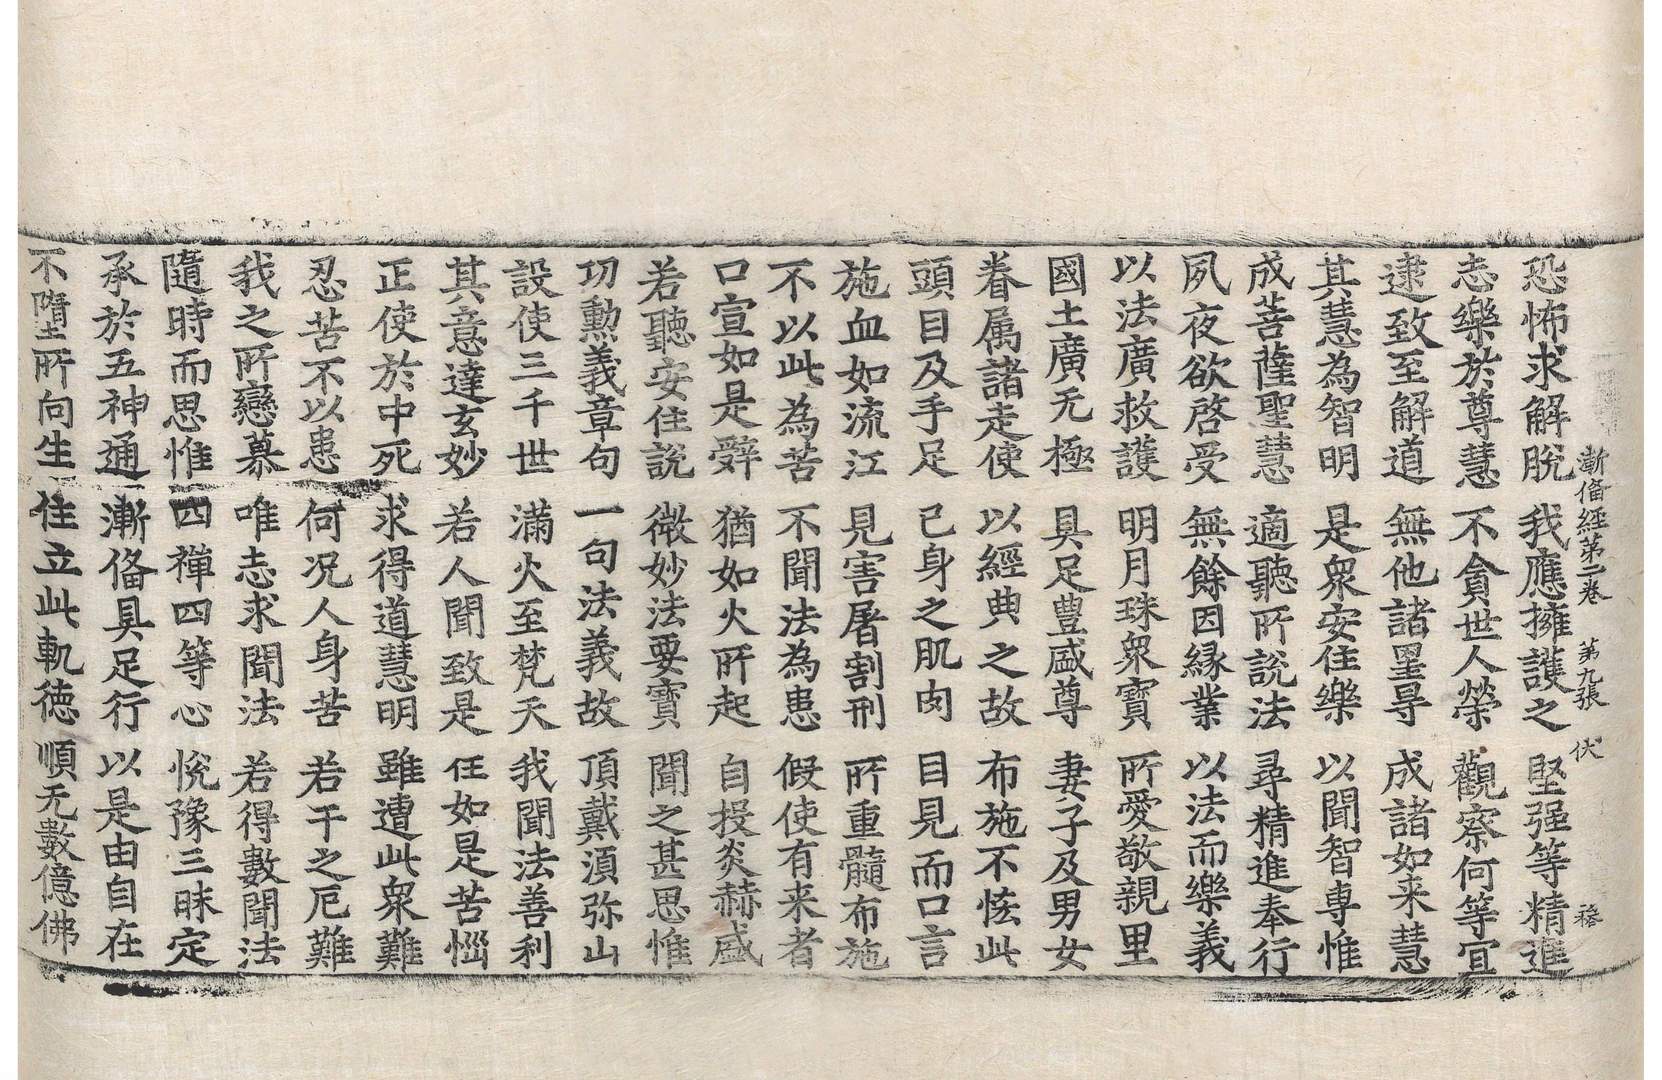 漸備經第二卷　第九張　伏　稱
恐怖求解脫　我應擁護之　堅强等精進
志樂於尊慧　不貪世人榮　觀察何等宜
逮致至解道　無他諸罣㝵　成諸如来慧
其慧為智明　是衆安住樂　以聞智專惟
成菩薩聖慧　適聽所說法　尋精進奉行
夙夜欲啓受　無餘因縁業　以法而樂義
以法廣救護　明月珠衆寶　所愛敬親里
國土廣无極　具足豊盛尊　妻子及男女
眷属諸走使　以經典之故　布施不恡此
頭目及手足　己身之肌肉　目見而口言
施血如流江　見害屠割刑　所重髓布施
不以此為苦　不聞法為患　假使有来者
口宣如是辝　猶如火所起　自投炎赫盛
若聽安住說　微妙法要寶　聞之甚思惟
功勲義章句　一句法義故　頂戴湏弥山
設使三千世　滿火至梵天　我聞法善利
其意達玄妙　若人聞致是　任如是苦惱
正使於中死　求得道慧明　雖遭此衆難
忍苦不以患　何况人身苦　若干之厄難
我之所戀慕　唯志求聞法　若得數聞法
隨時而思惟　四禪四等心　悅豫三昧定
承於五神通　漸俻具足行　以是由自在
不墮所向生　住立此軌徳　順无數億佛